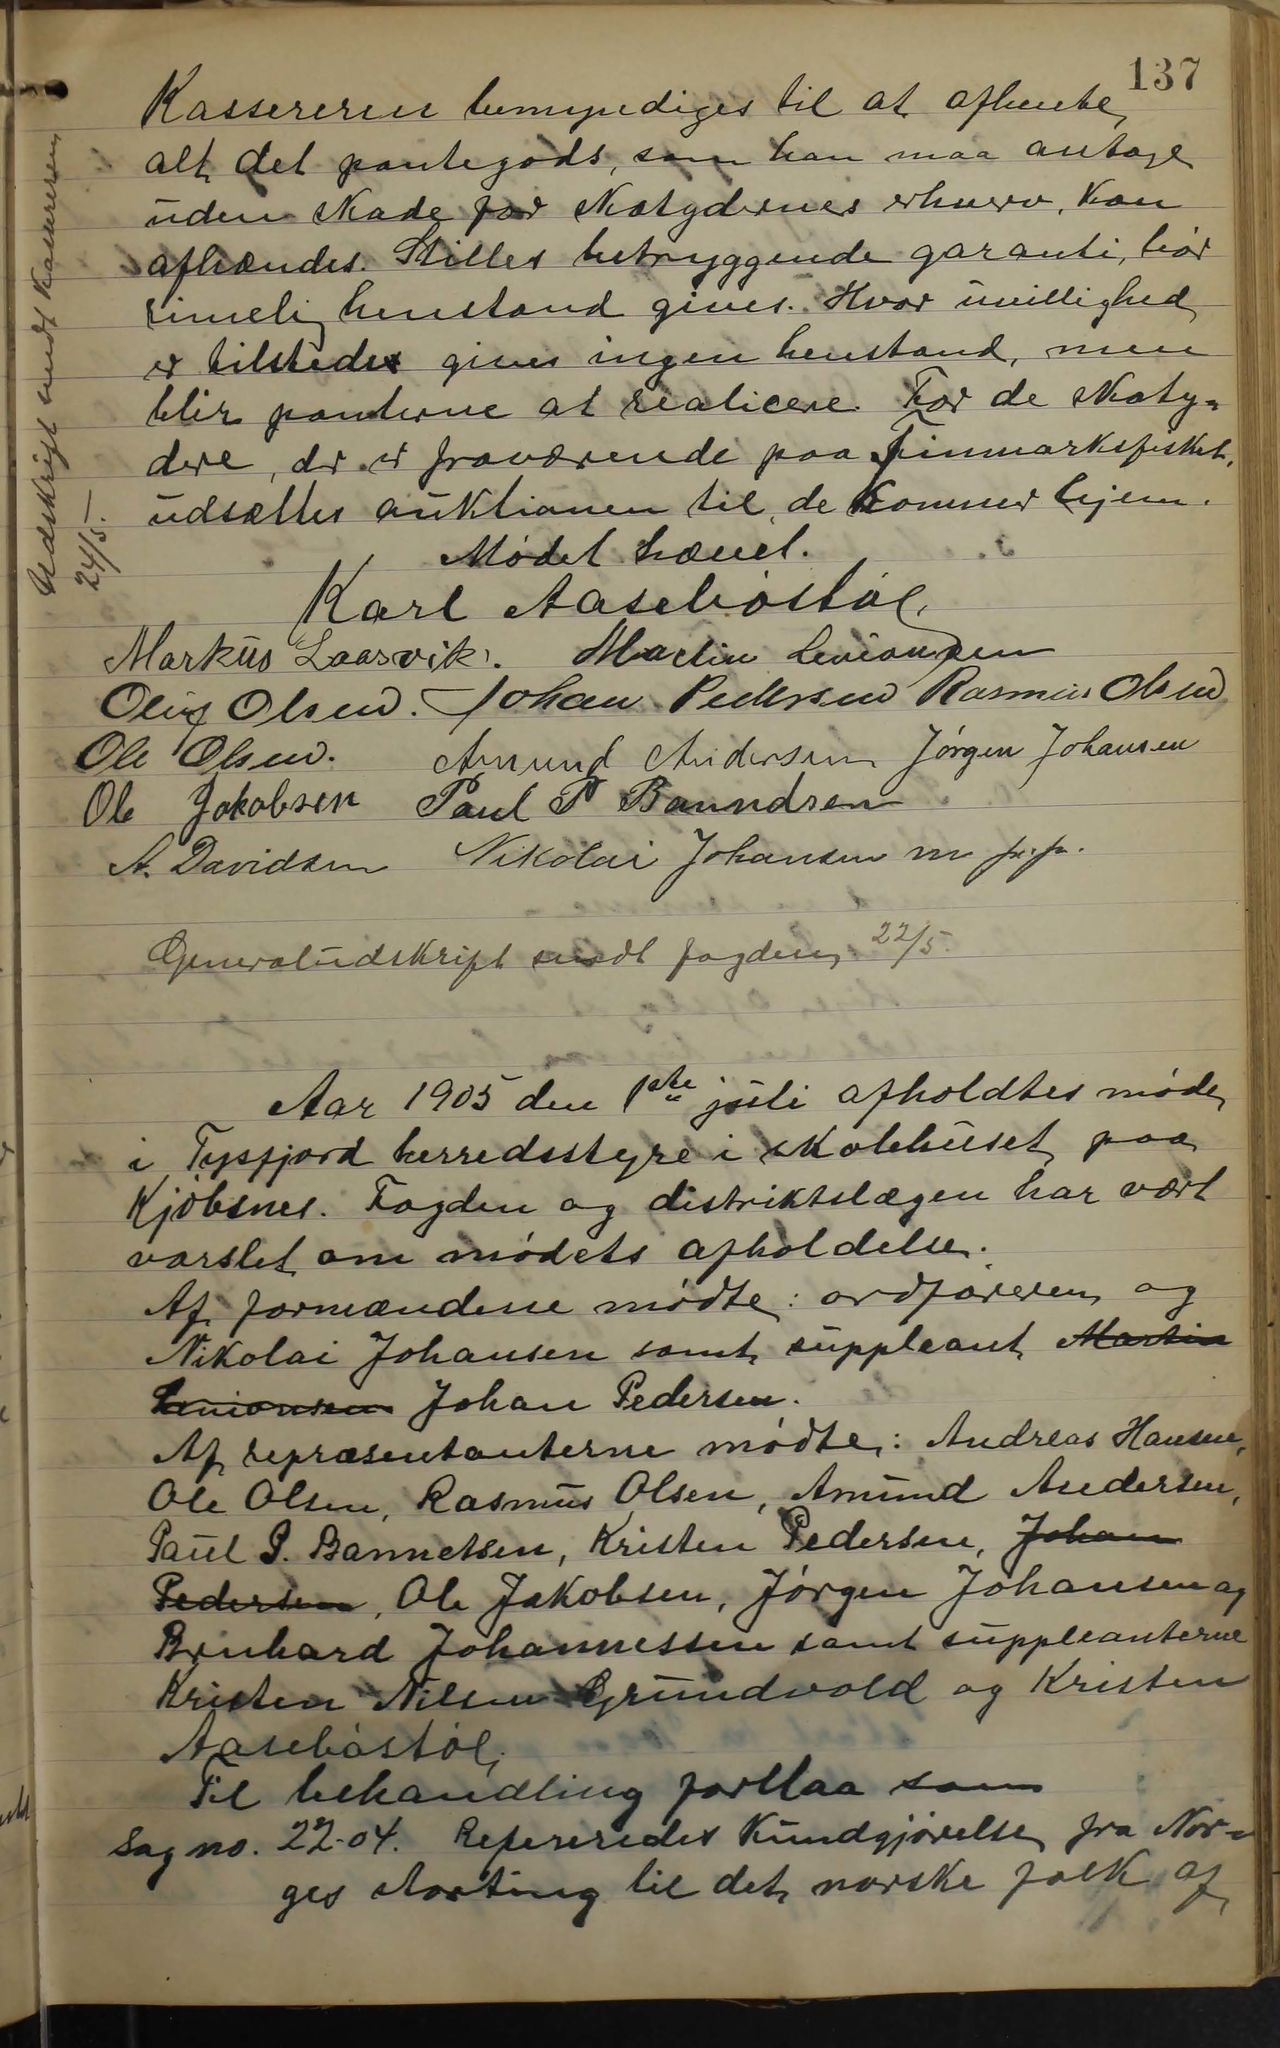 137
Kassereren bemyndiges til at afhente
alt det pantegods, som han maa antage
uden skade for skatydernes erhverv, kan
afhændes. Stilles betryggende garanti, bør
rimelig henstand gives. Hvor uvillighed
er tilstede gives ingen henstand, men
blir panterne at realicere. For de skaty-
dere, der er fraværende paa Finmarksfisket,
udsættes auktionen til de kommer hjem.
Mødet hævet.
Karl Aasebøstøl
Markus Laarvik. Martin Simonsen
Oluf Olsen. Johan Pedersen Rasmus Olsen
Ole Olsen. Amund Andersen Jørgen Johansen
Ole Jakobsen Paul P Banndsen
A. Davidsen Nikolai Johansen m p.p.
Udskrift sendt Kassereren
24/5.
Generaludskrift sendt fogden 22/5.
Aar 1905 den 1ste juli afholdtes møde
i Tysfjord herredsstyre i skolehuset paa
Kjøbsnes. Fogden og distriktslægen har vært
varslet om mødets afholdelse.
Af formændene mødte: ordføreren og
Nikolai Johansen samt suppleant Martin
Simonsen Johan Pedersen.
Af repræsentanterne mødte: Andreas Hansen,
Ole Olsen, Rasmus Olsen, Amund Andersen,
Paul P. Bannetsen, Kristen Pedersen, Johan
Pedersen, Ole Jakobsen, Jørgen Johansen og
Bernhard Johannessen samt suppleanterne
Kristen Nilsen Grundvold og Kristen
Aasebøstøl.
Til behandling forelaa som
Sag no. 22-04. Refereredes Kundgjørelse fra Nor-
ges storting til det norske folk af